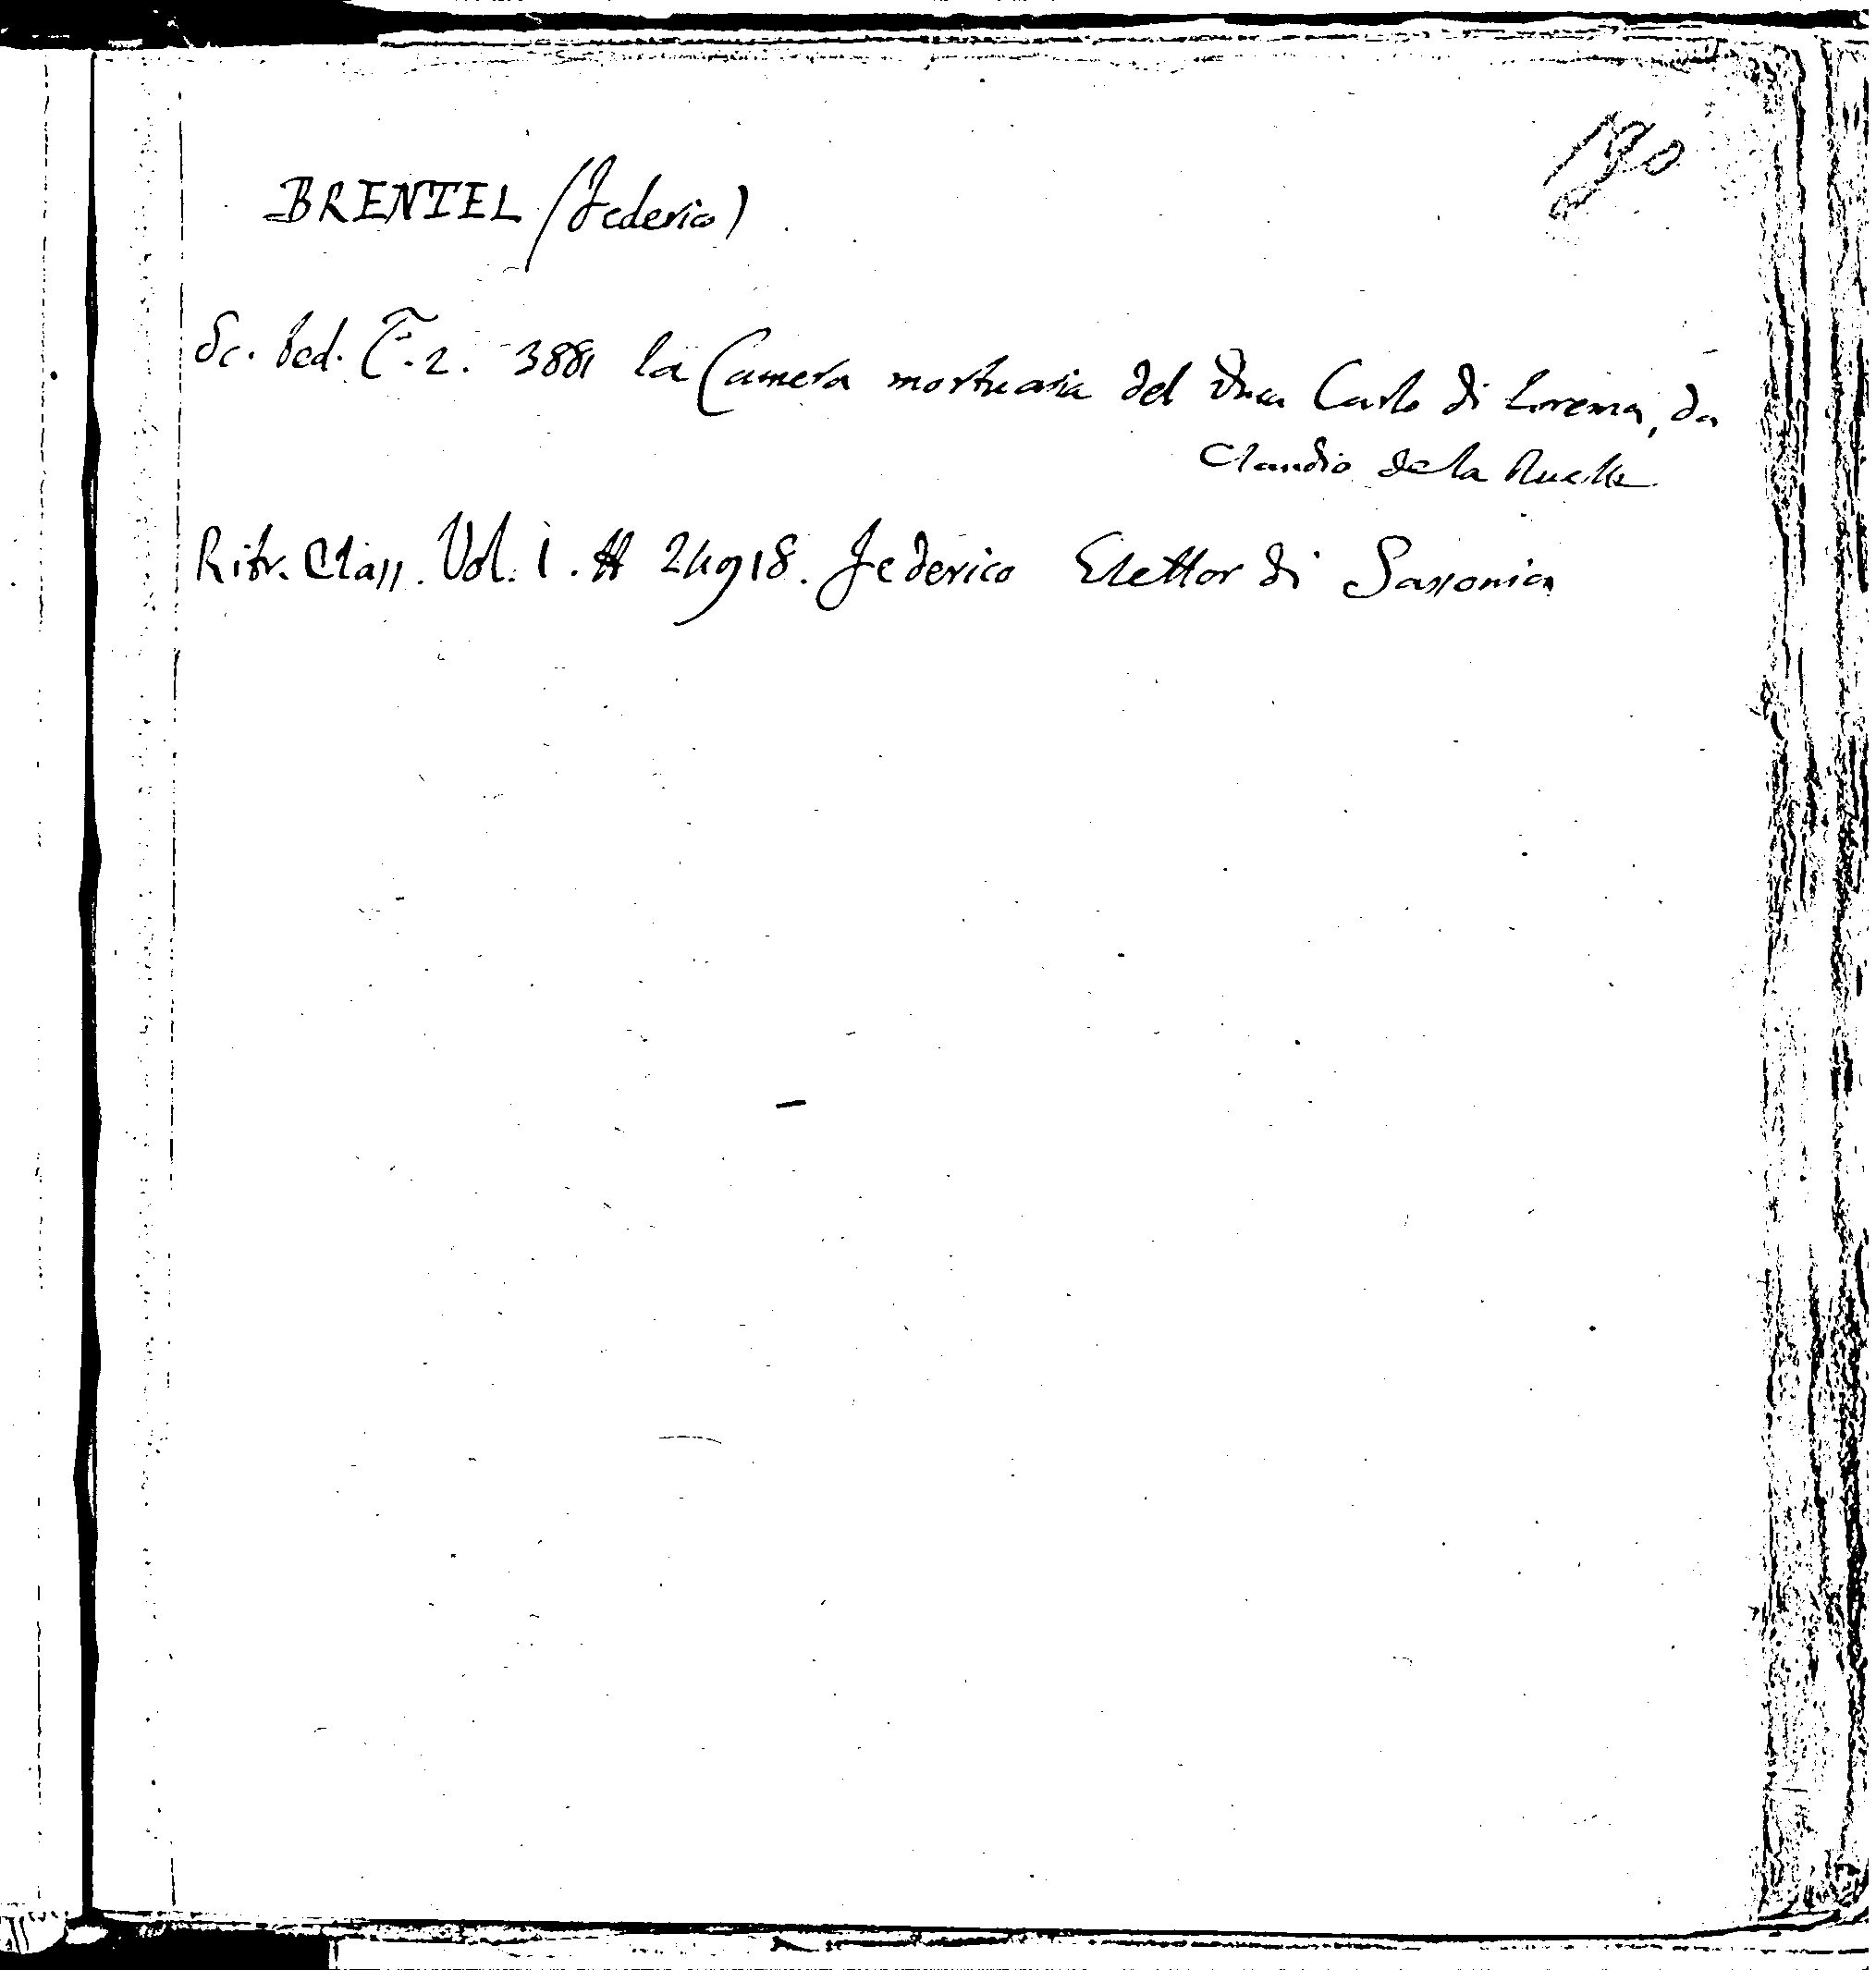 190
BRENTEL (Federico)
Sc. Ted. T. 2. 3881 la Camera mortuaria del Duca Carlo di Lorena, da
Claudio de la Ruelle
Ritr. Class. Vol. 1. # 24918. Federico Elettor di Sassonia